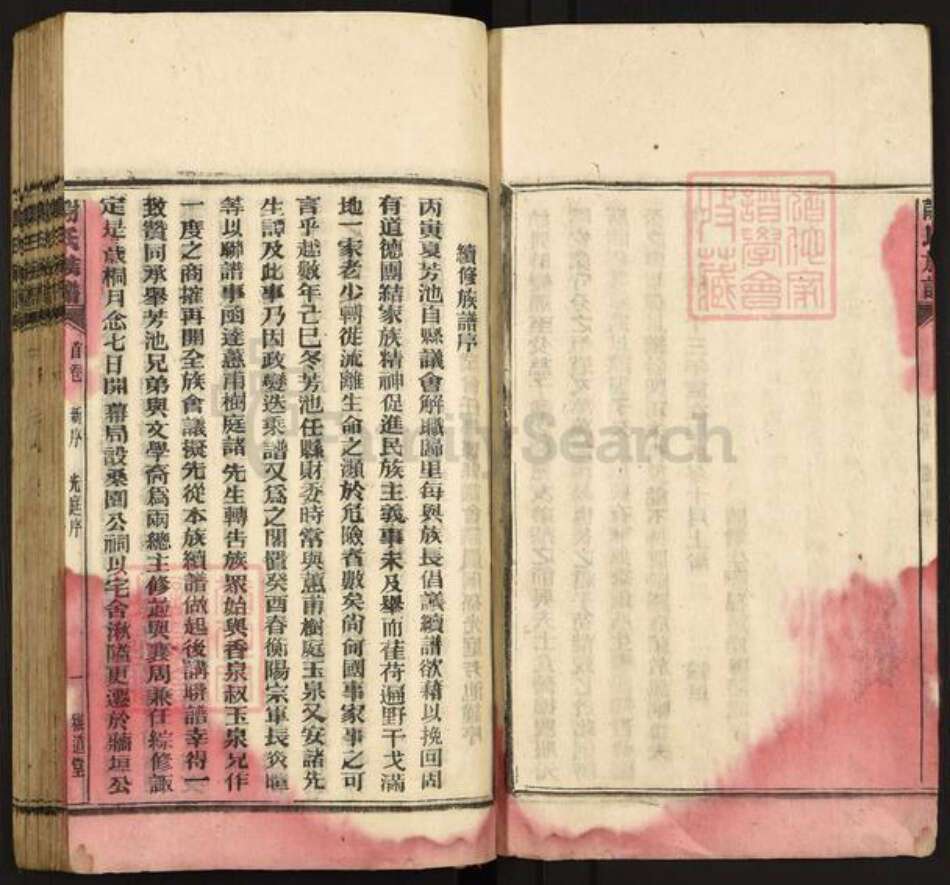 續修族譜序
丙寅夏芳池自縣議會解職歸里每與族長倡議續譜欲藉以挽回固
有道德團結家族精神促進民族主義事未及舉而萑苻遍野干戈滿
地一家老少轉徙流離生命之瀕於危險者數矣尚何國事家事之可
言乎越數年己巳冬芳池任縣財委時常與蕙甫樹庭玉泉又安諸先
生譚及此事乃因政變迭乘譜又爲之閣置癸酉春衡陽宗軍長炎暄
等以聯譜事函達蕙甫樹庭諸先生轉告族眾始與香泉叔玉泉兄作
一度之商搉再開全族會議擬先從本族續譜做起後講聯譜幸得一
致贊同承舉芳池兄弟與文學裔爲兩總主修並與襄周兼任綜修諏
定是歲桐月念七日開幕局設桑園公祠以宅舍湫隘更遷於牆垣公
謝氏族譜
首卷 新序 光庭序 一
道堂
FamilySearch